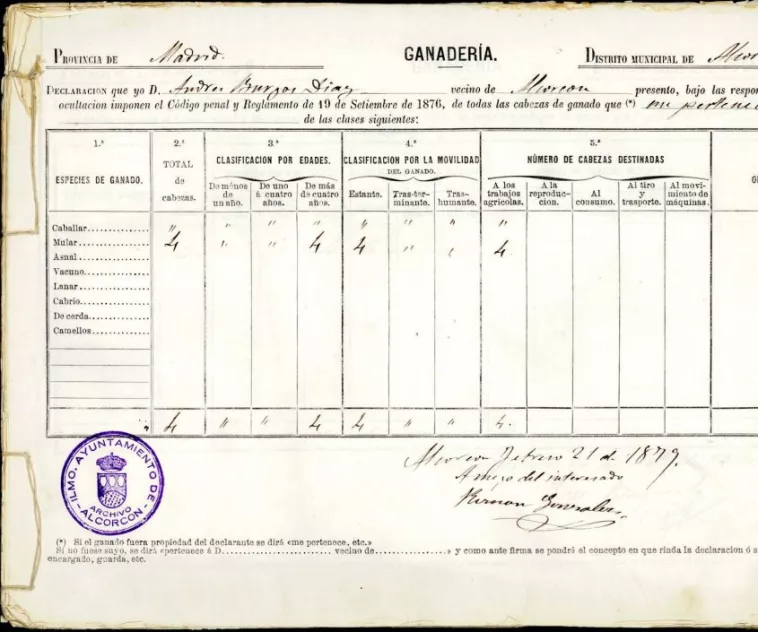 PROVINCIA DE Madrid. GANADERÍA. DISTRITO MUNICIPAL DE Alcor
DECLARACION que yo D. Andres Burgos Diaz vecino de Alcorcon presento, bajo las respon
ocultacion imponen el Código penal y Reglamento de 19 de Setiembre de 1876, de todas las cabezas de ganado que (*) me pertene
de las clases siguientes:
1.ª 2.ª 3.ª 4.ª 5.ª
ESPECIES DE GANADO. TOTAL de cabezas. CLASIFICACION POR EDADES. CLASIFICACION POR LA MOVILIDAD DEL GANADO. NÚMERO DE CABEZAS DESTINADAS
De ménos de un año. De uno á cuatro años. De más de cuatro años. Estante. Tras-ter-minante. Tras-humante. A los trabajos agrícolas. A la reproduc-cion. Al consumo. Al tiro y trasporte. Al movi-miento de máquinas.
Caballar.............. " " " " " " " "
Mular................ 4 " " 4 4 " " 4
Asnal................
Vacuno...............
Lanar................
Cabrío...............
De cerda.............
Camellos.............
4 " " 4 4 " " 4.
Alcorcon Febrero 21 de 1879.
A ruego del interesado
Gonzalez
ILMO. AYUNTAMIENTO DE
ARCHIVO
-ALCORCON-
(*) Si el ganado fuera propiedad del declarante se dirá «me pertenece, etc.»
Si no fuese suyo, se dirá «pertenece á D.................... vecino de.................» y como ante firma se pondrá el concepto en que rinda la declaracion ó s
encargado, guarda, etc.